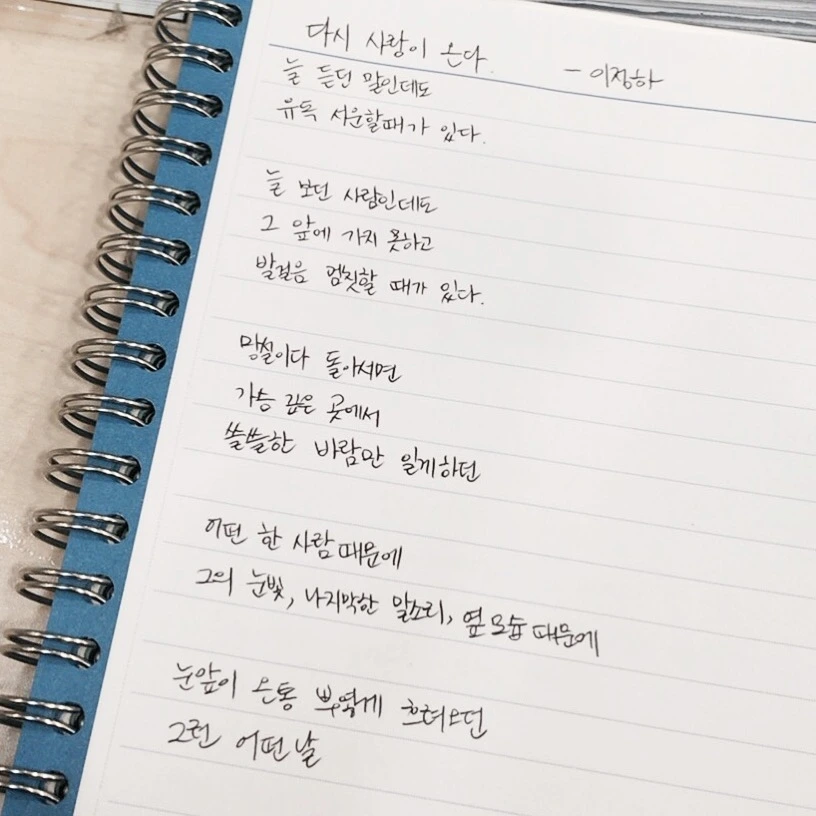 다시 사랑이 온다.
- 이정하
늘 듣던 말인데도
유독 서운할때가 있다.
늘 보던 사람인데도
그 앞에 가지 못하고
발걸음 멈칫할 때가 있다.
망설이다 돌아서면
가슴 깊은 곳에서
쓸쓸한 바람만 일게하던
어떤 한 사람 때문에
그의 눈빛, 나지막한 말소리, 옆모습 때문에
눈앞이 온통 뿌옇게 흐려오던
그런 어떤 날